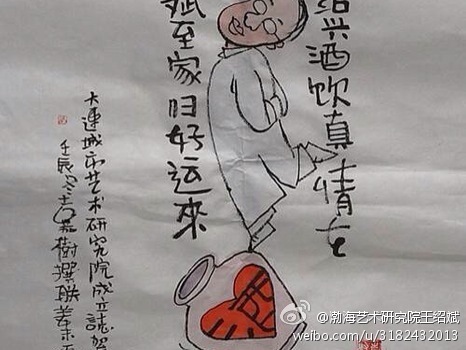 绍兴酒饮真情
斌至家归好运來
大連城市艺术研究院成立誌贺
壬辰冬吉嘉樹撰联
@渤海艺术研究院王绍斌
weibo.com/u/3182432013